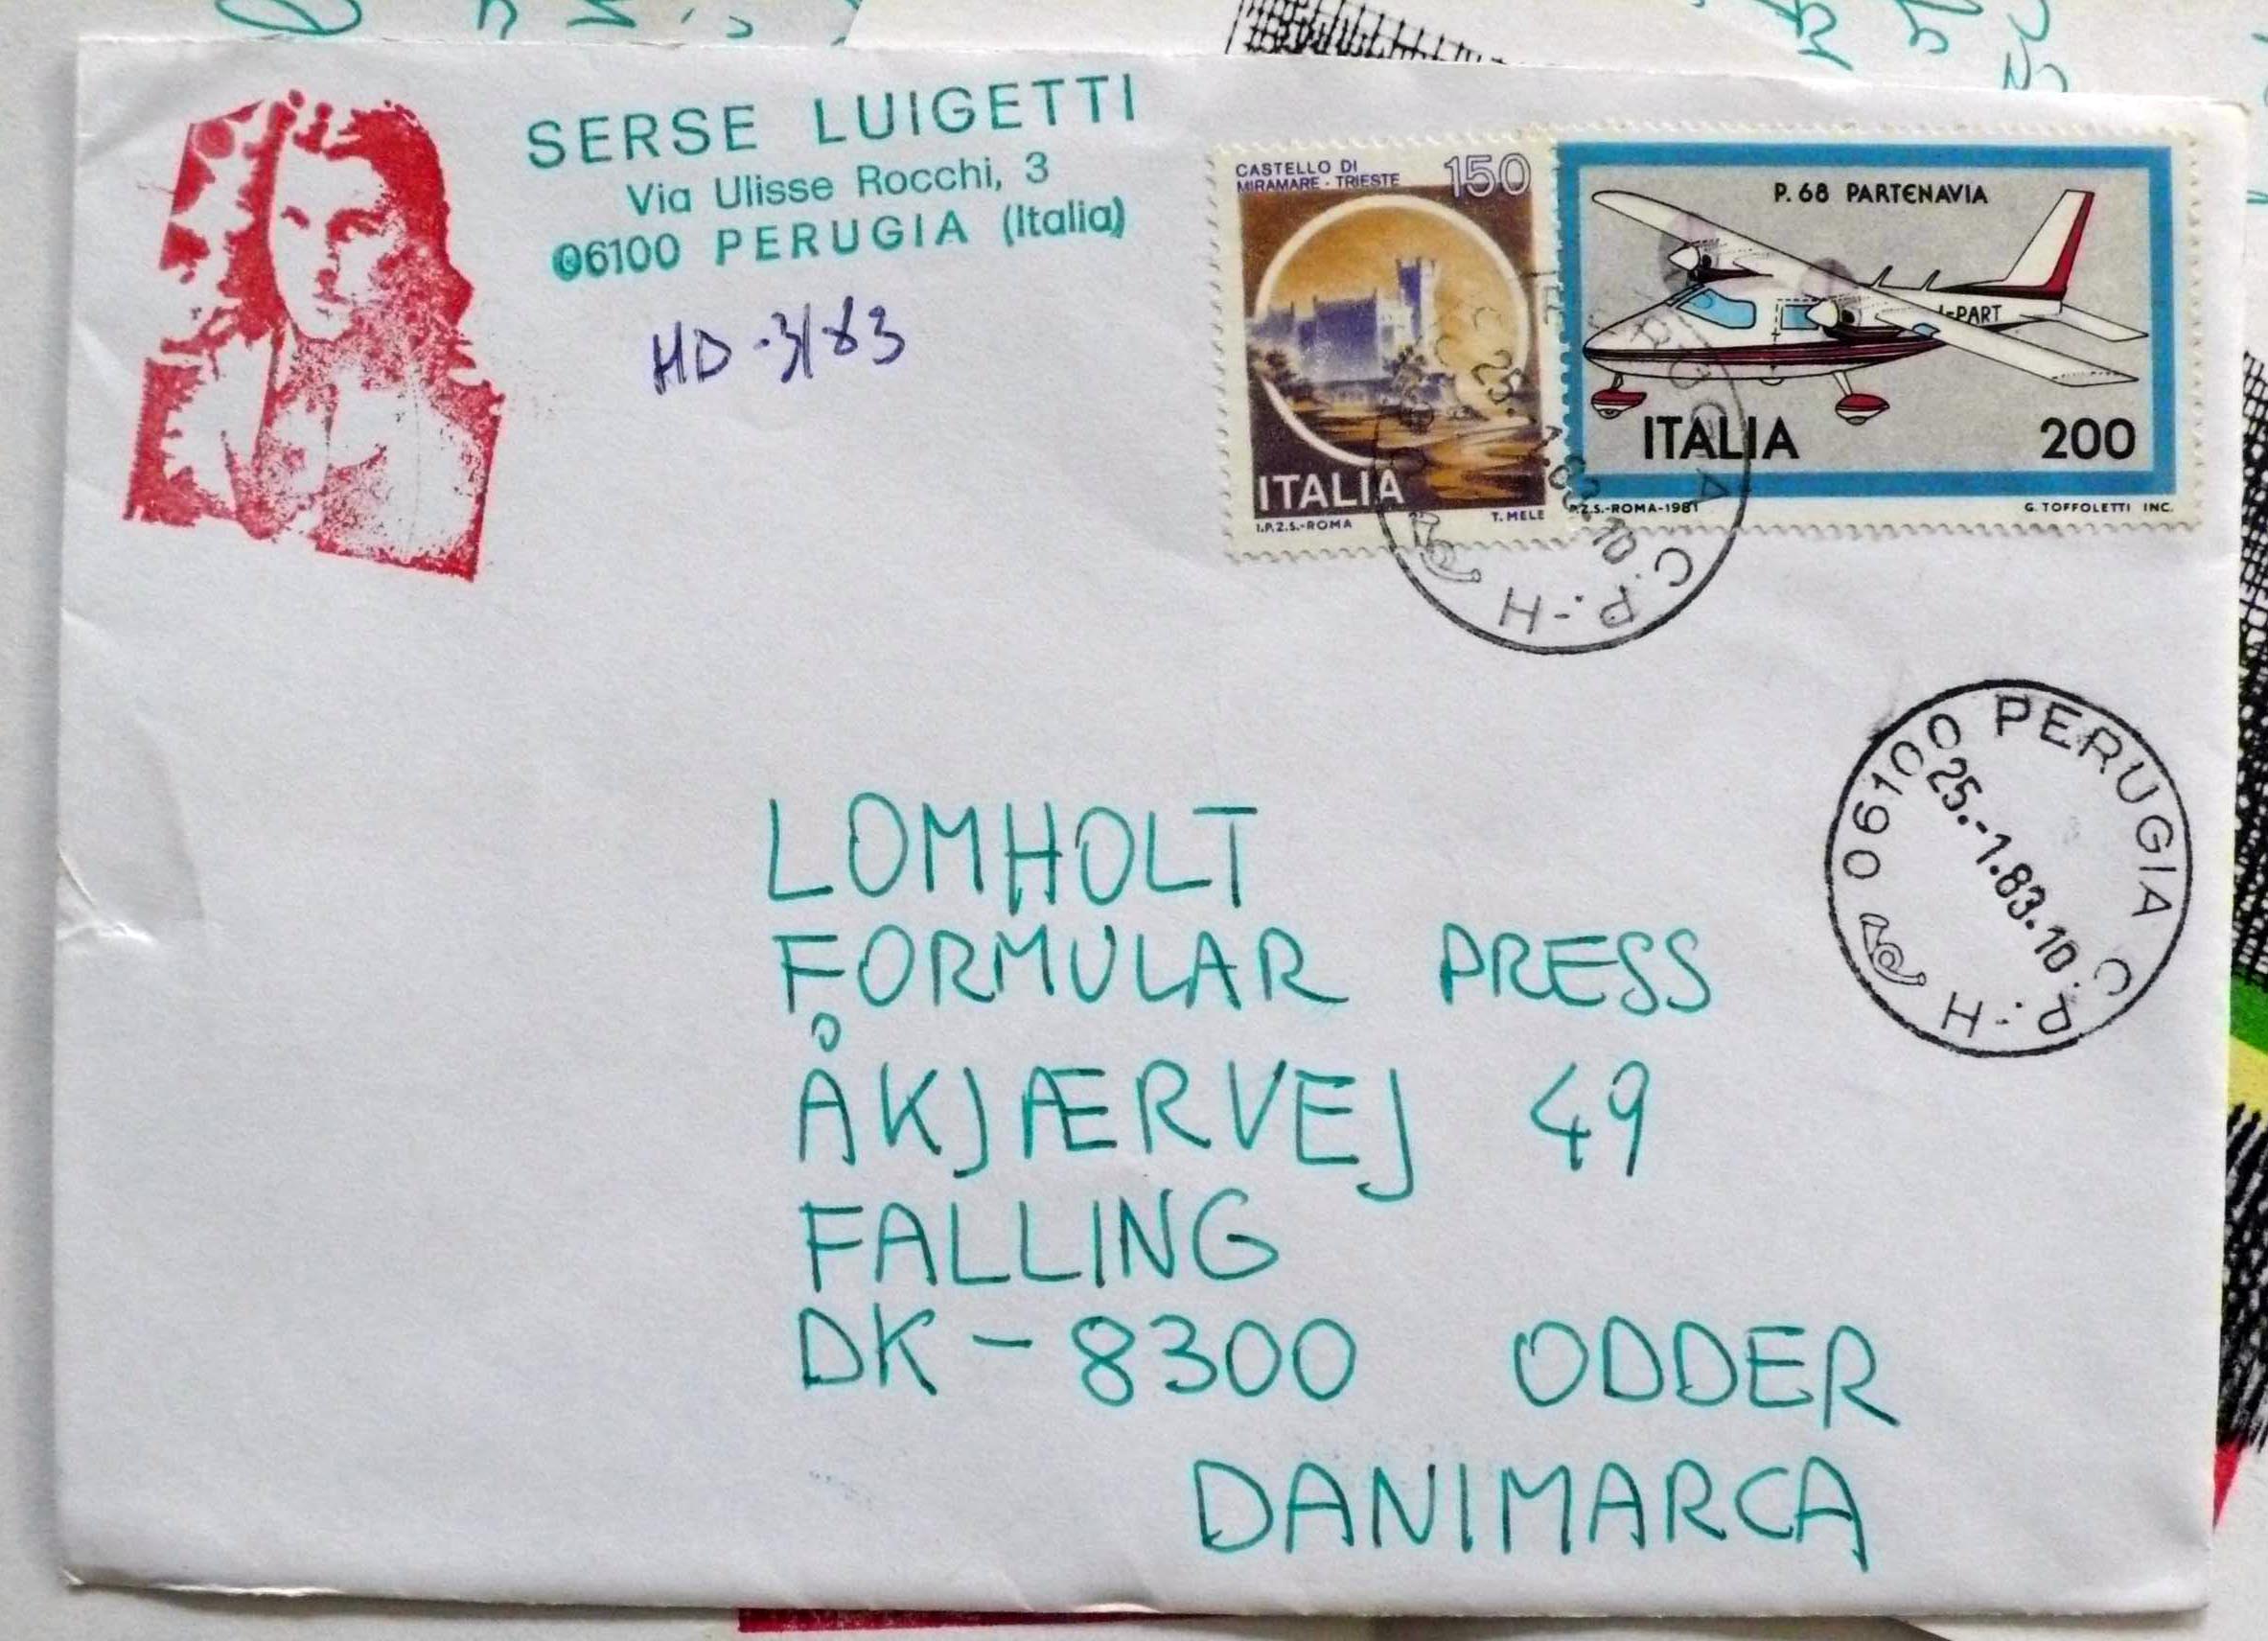 SERSE LUIGETTI
Via Ulisse Rocchi, 3
06100 PERUGIA (Italia)
HD-3/83
CASTELLO DI
MIRAMARE - TRIESTE 150
ITALIA
I.P.Z.S.-ROMA T. MELE
P. 68 PARTENAVIA
I-PART
ITALIA 200
P.Z.S.-ROMA-1981 G. TOFFOLETTI INC.
C.P.-H
06100 PERUGIA C.P.-H
25.-1.83.10
LOMHOLT
FORMULAR PRESS
ÅKJÆRVEJ 49
FALLING
DK-8300 ODDER
DANIMARCA